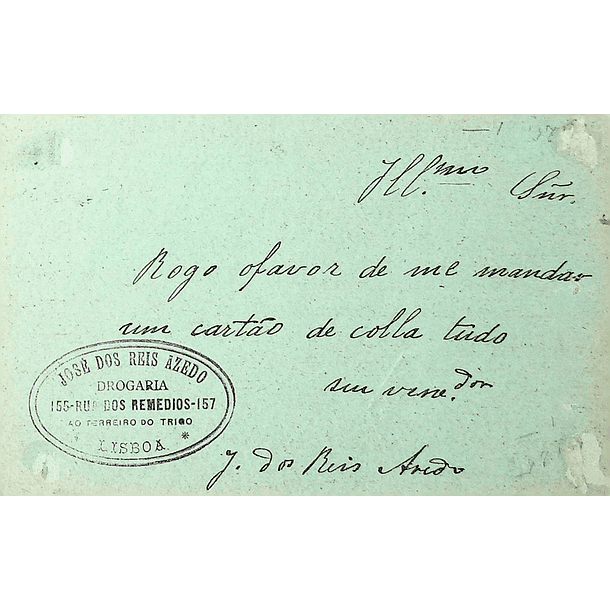 Ill.mo Snr.
Rogo o favor de me mandar
um cartão de colla tudo
seu vene.dor
J. dos Reis Azedo
JOSÉ DOS REIS AZEDO
DROGARIA
155-RUA DOS REMEDIOS-157
AO TERREIRO DO TRIGO
* LISBOA *